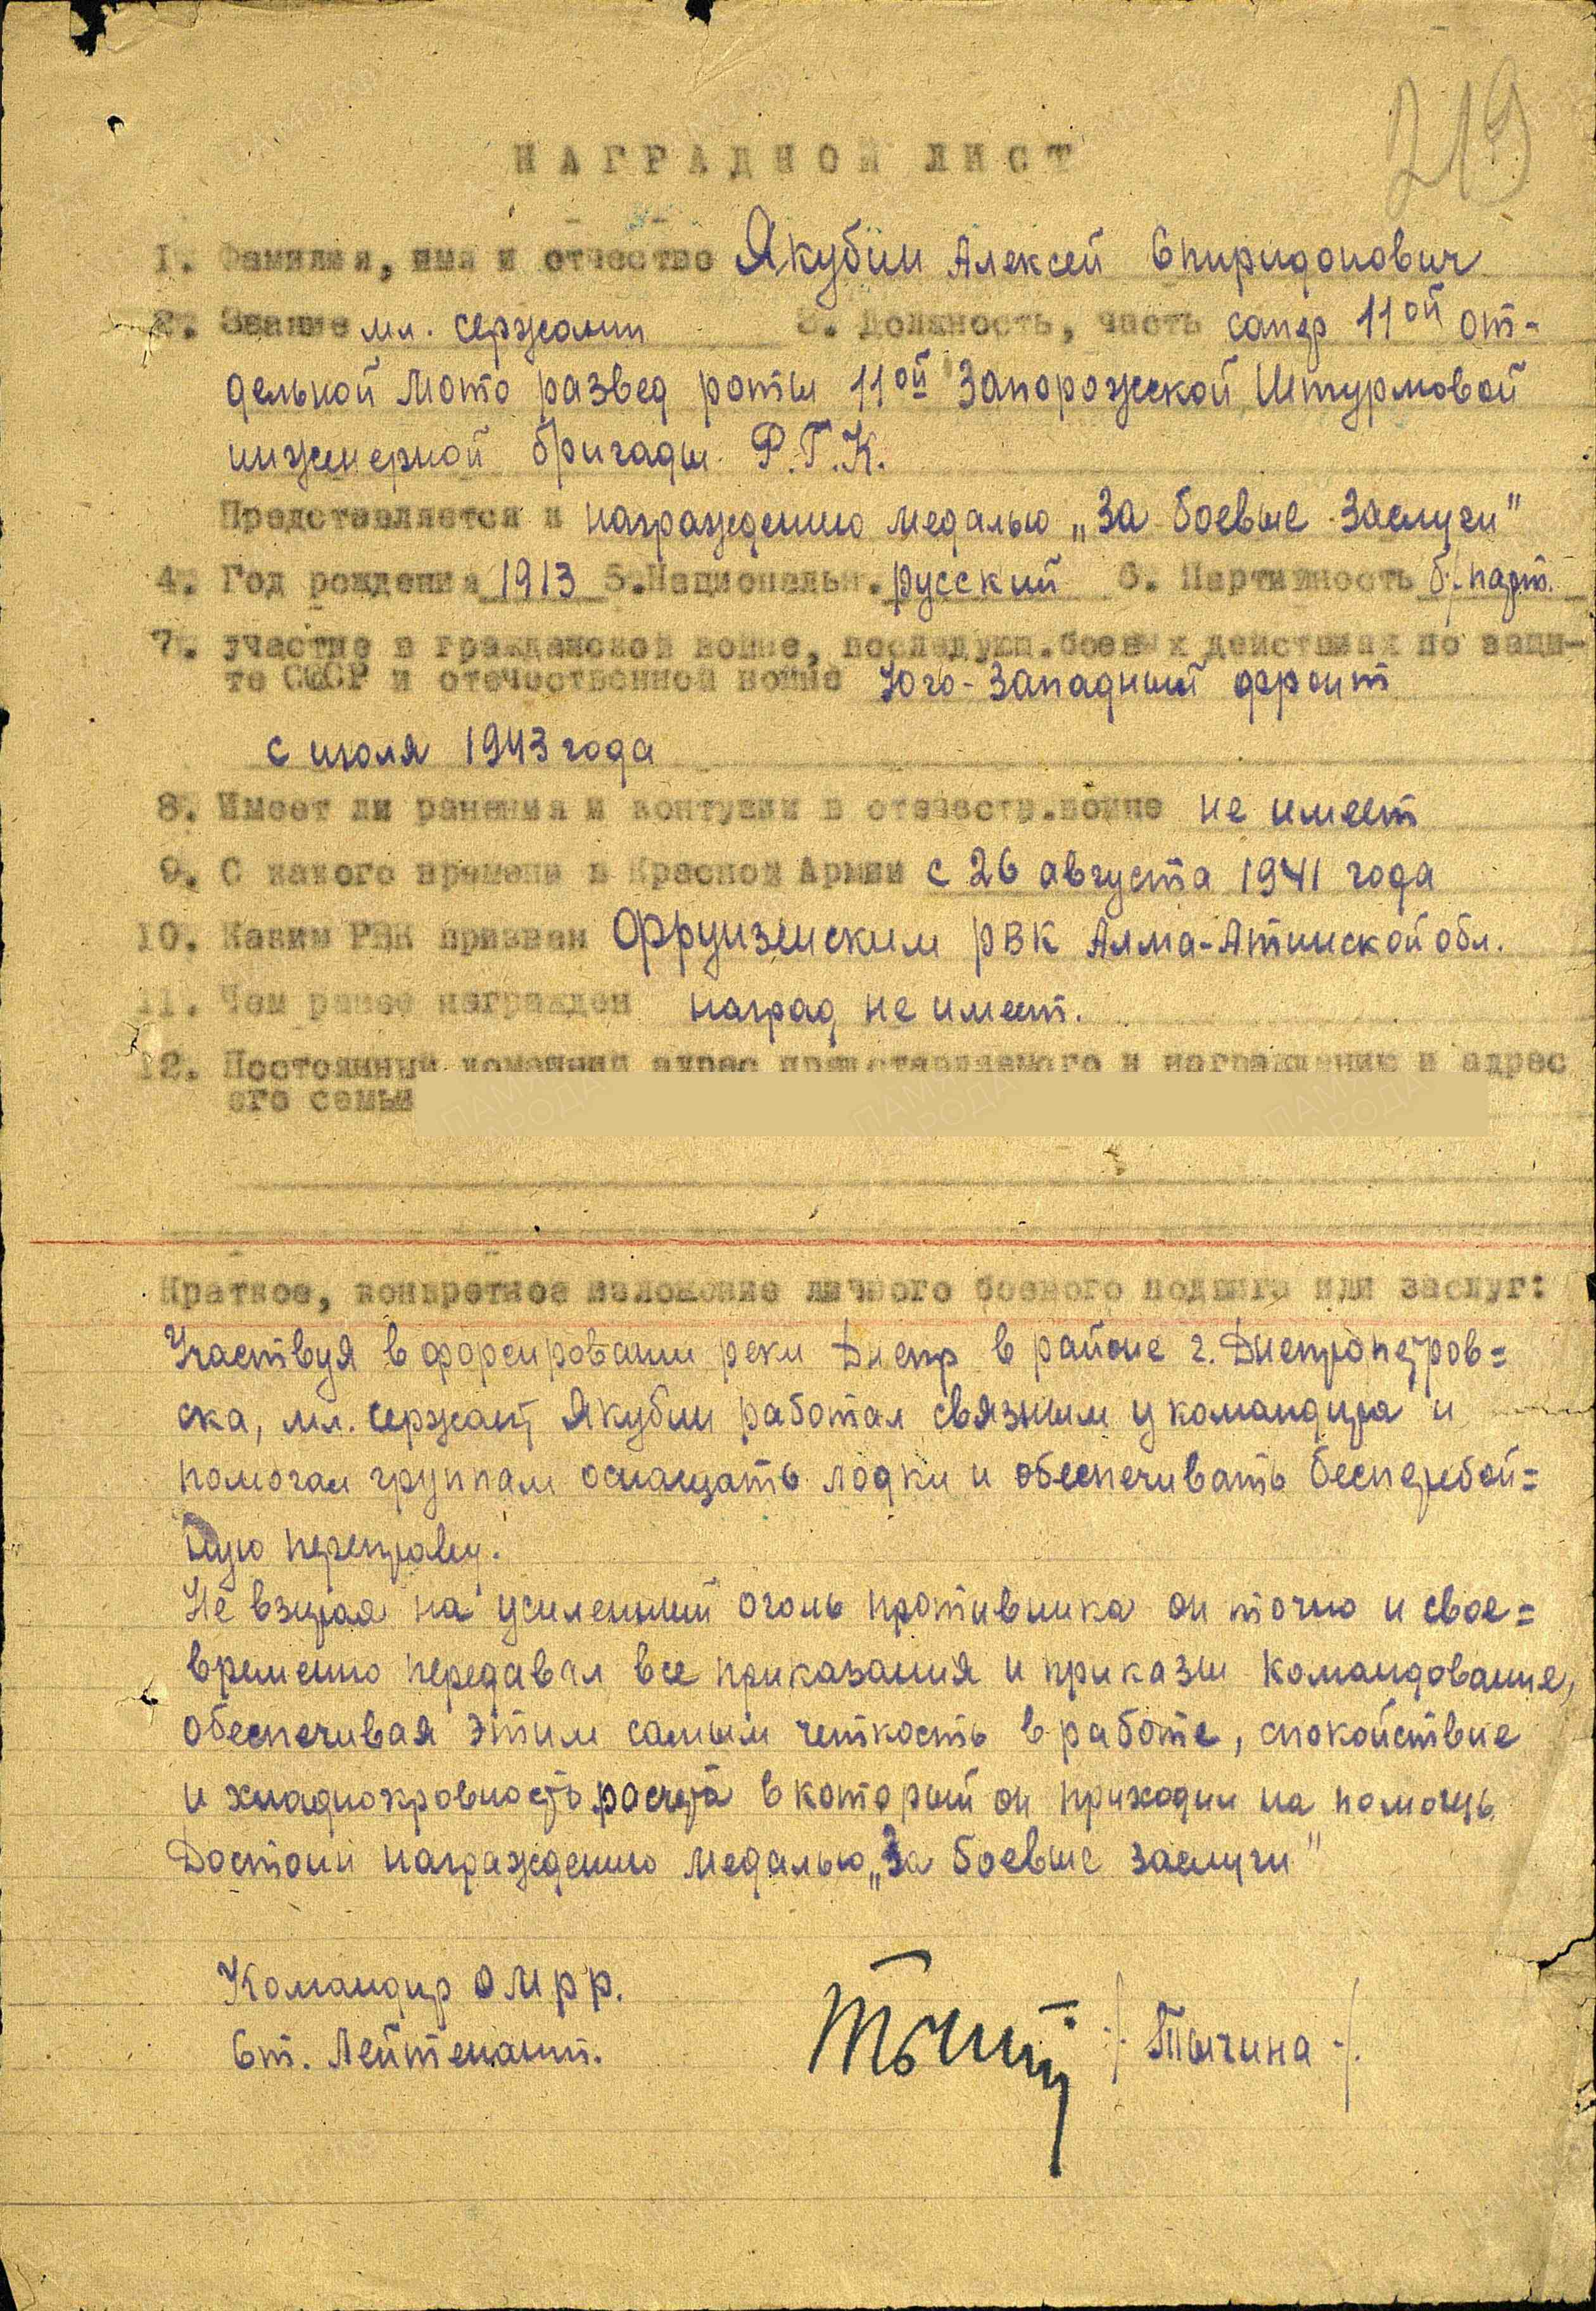 219
НАГРАДНОЙ ЛИСТ
1. Фамилия, имя и отчество Якубин Алексей Спиридонович
2. Звание мл. сержант 3. Должность, часть сапер 11ой от-
дельной мото развед роты 11ой Запорожской Штурмовой
инженерной бригады Р.Г.К.
Представляется к награждению медалью „За боевые заслуги"
4. Год рождения 1913 5. Национальн. русский 6. Партийность б/парт.
7. участие в гражданской войне, последующ. боевых действиях по защи-
те СССР и отечественной войне Юго-Западный фронт
с июля 1943 года
8. Имеет ли ранения и контузии в отечеств. войне не имеет
9. С какого времени в Красной Армии с 26 августа 1941 года
10. Каким РВК призван Фрунзенским РВК Алма-Атинской обл.
11. Чем ранее награжден наград не имеет.
12. Постоянный домашний адрес представляемого к награждению и адрес
его семьи
Краткое, конкретное изложение личного боевого подвига или заслуг:
Участвуя в форсировании реки Днепр в районе г. Днепропетров=
ска, мл. сержант Якубин работал связным у командира и
помогал группам оснащать лодки и обеспечивать бесперебой=
ную переправу.
Не взирая на усиленный огонь противника он точно и свое=
временно передавал все приказания и приказы командования,
обеспечивая этим самым четкость в работе, спокойствие
и хладнокровность расчета в который он приходил на помощь.
Достоин награждению медалью „За боевые заслуги"
Командир ОМРР.
Ст. Лейтенант. /Тычина/.